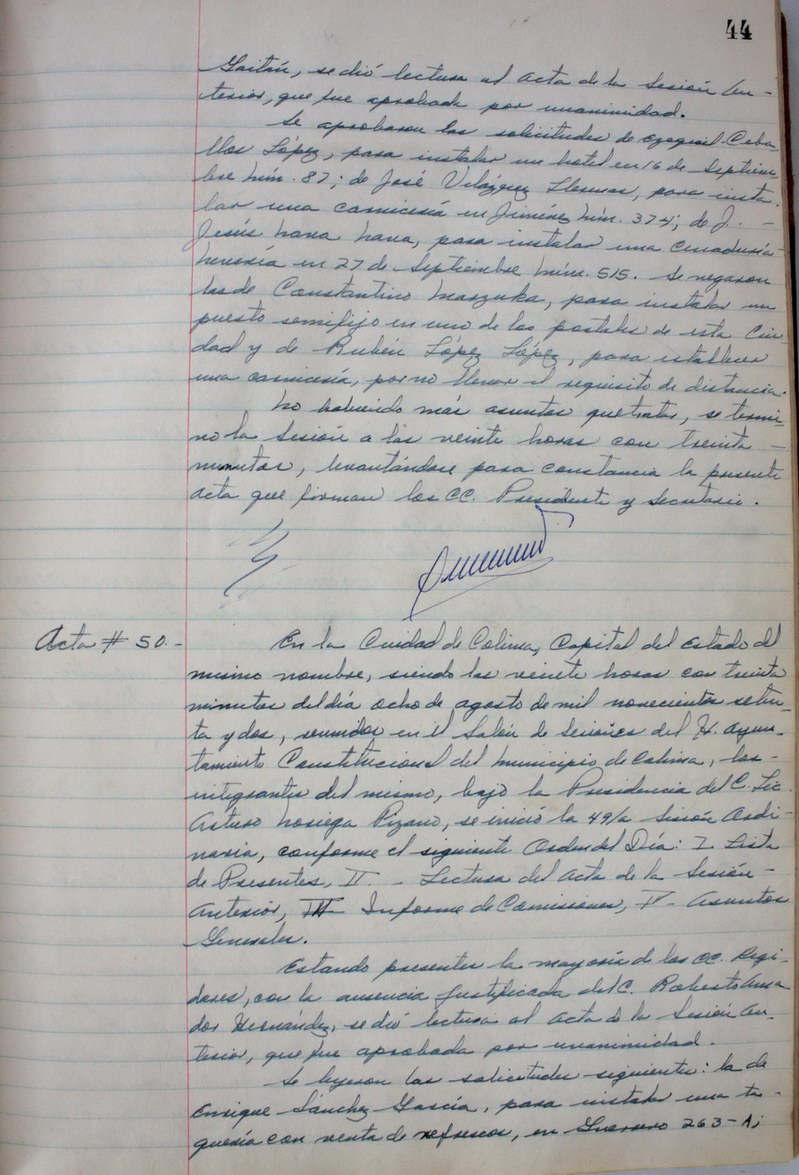 44
Gaitán, se dió lectura al acta de la Sesión An-
terior, que fue aprobada por unanimidad.
Se aprobaron las solicitudes de Ezequiel Ceba
llos López, para instalar un hotel en 16 de Septiem-
bre núm. 87; de José Velázquez Llerenas, para insta-
lar una carnicería en Jiménez núm. 374; de J. -
Jesús Nava Nava, para instalar una Cenaduría
en 27 de Septiembre núm. 515. Se negaron
las de Constantino Marzuka, para instalar un
puesto semifijo en uno de los portales de esta Ciu-
dad y de Rubén López López, para establecer
una carnicería, por no llenar el requisito de distancia.
No habiendo más asuntos que tratar, se termi-
no la Sesión a las veinte horas con treinta -
minutos, levantándose para constancia la presente
acta que firman los CC. Presidente y Secretario.
Acta # 50.-
En la Ciudad de Colima, Capital del Estado del
mismo nombre, siendo las veinte horas con treinta
minutos del día ocho de agosto de mil novecientos seten-
ta y dos, reunidos en el Salón de Sesiones del H. Ayun-
tamiento Constitucional del Municipio de Colima, los -
integrantes del mismo, bajo la Presidencia del C. Lic.
Arturo Noriega Pizano, se inició la 49/a Sesión Ordi-
naria, conforme el siguiente Orden del Día: I. Lista
de Presentes, II. - Lectura del Acta de la Sesión -
Anterior, III- Informe de Comisiones, IV- Asuntos
Generales.
Estando presentes la mayoría de los CC. Regi-
dores, con la ausencia justificada del C. Roberto Ama
dor Hernández, se dió lectura al Acta de la Sesión An-
terior, que fue aprobada por unanimidad.
Se leyeron las solicitudes siguientes: la de
Enrique Sánchez García, para instalar una ta-
quería con venta de refrescos, en Guerrero 263-A;